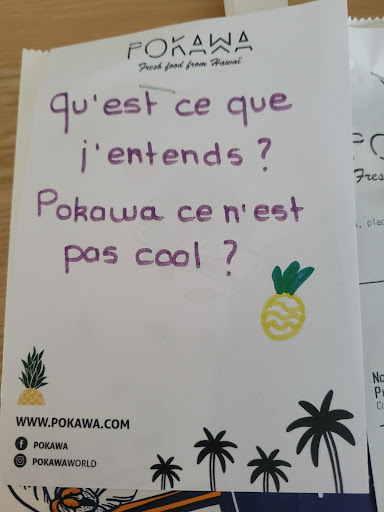 POKAWA
Fresh food from Hawaï
qu'est ce que
j'entends ?
Pokawa ce n'est
pas cool ?
WWW.POKAWA.COM
POKAWA
POKAWAWORLD